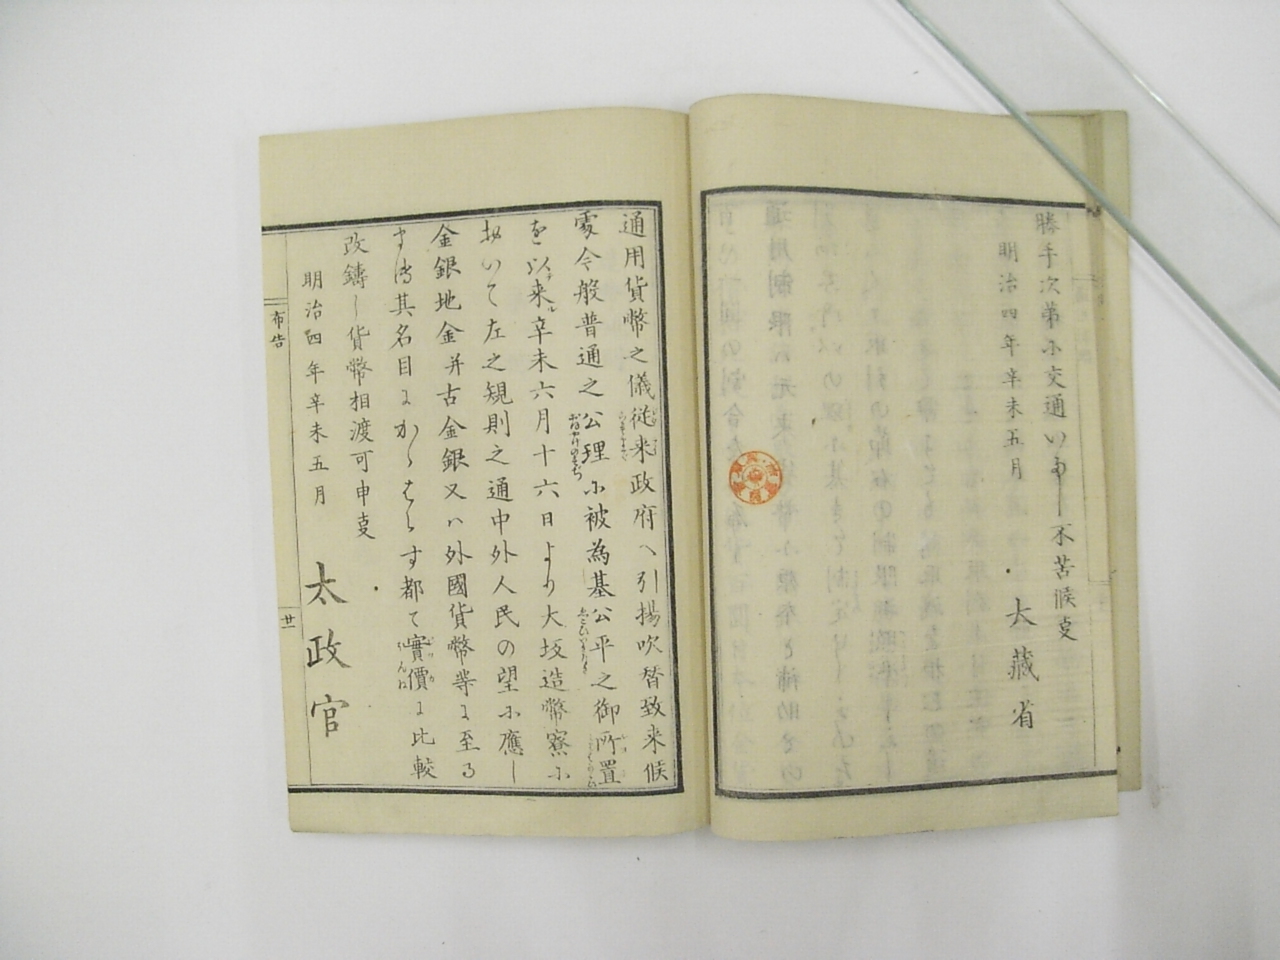 勝手次第ニ交通いたし不苦候叓
明治四年辛未五月
大藏省
通用貨幣之儀従来政府ヘ引揚吹替致来候
處今般普通之公理ニ被為基公平之御所置
を以来ル辛未六月十六日より大坂造幣寮ニ
於いて左之規則之通中外人民の望ニ應し
金銀地金并古金銀又ハ外國貨幣等に至る
まて其名目にかゝはらす都て實價に比較
改鑄し貨幣相渡可申叓
明治四年辛未五月
太政官
布告
廿一